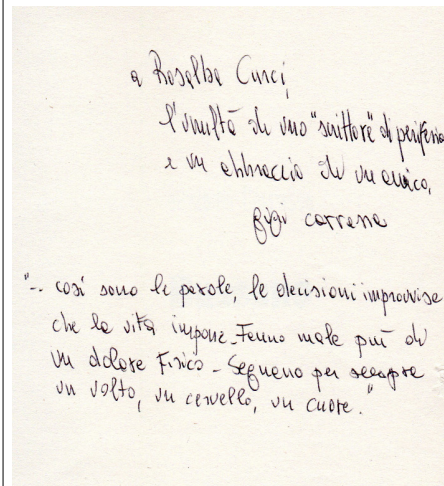 a Rosalba Curci,
l'umiltà di uno "scrittore" di periferia
e un abbraccio di un amico,
gigi carrena
".. così sono le parole, le decisioni improvvise
che la vita impone_Fanno male più di
un dolore Fisico_Segnano per sempre
un volto, un cervello, un cuore."